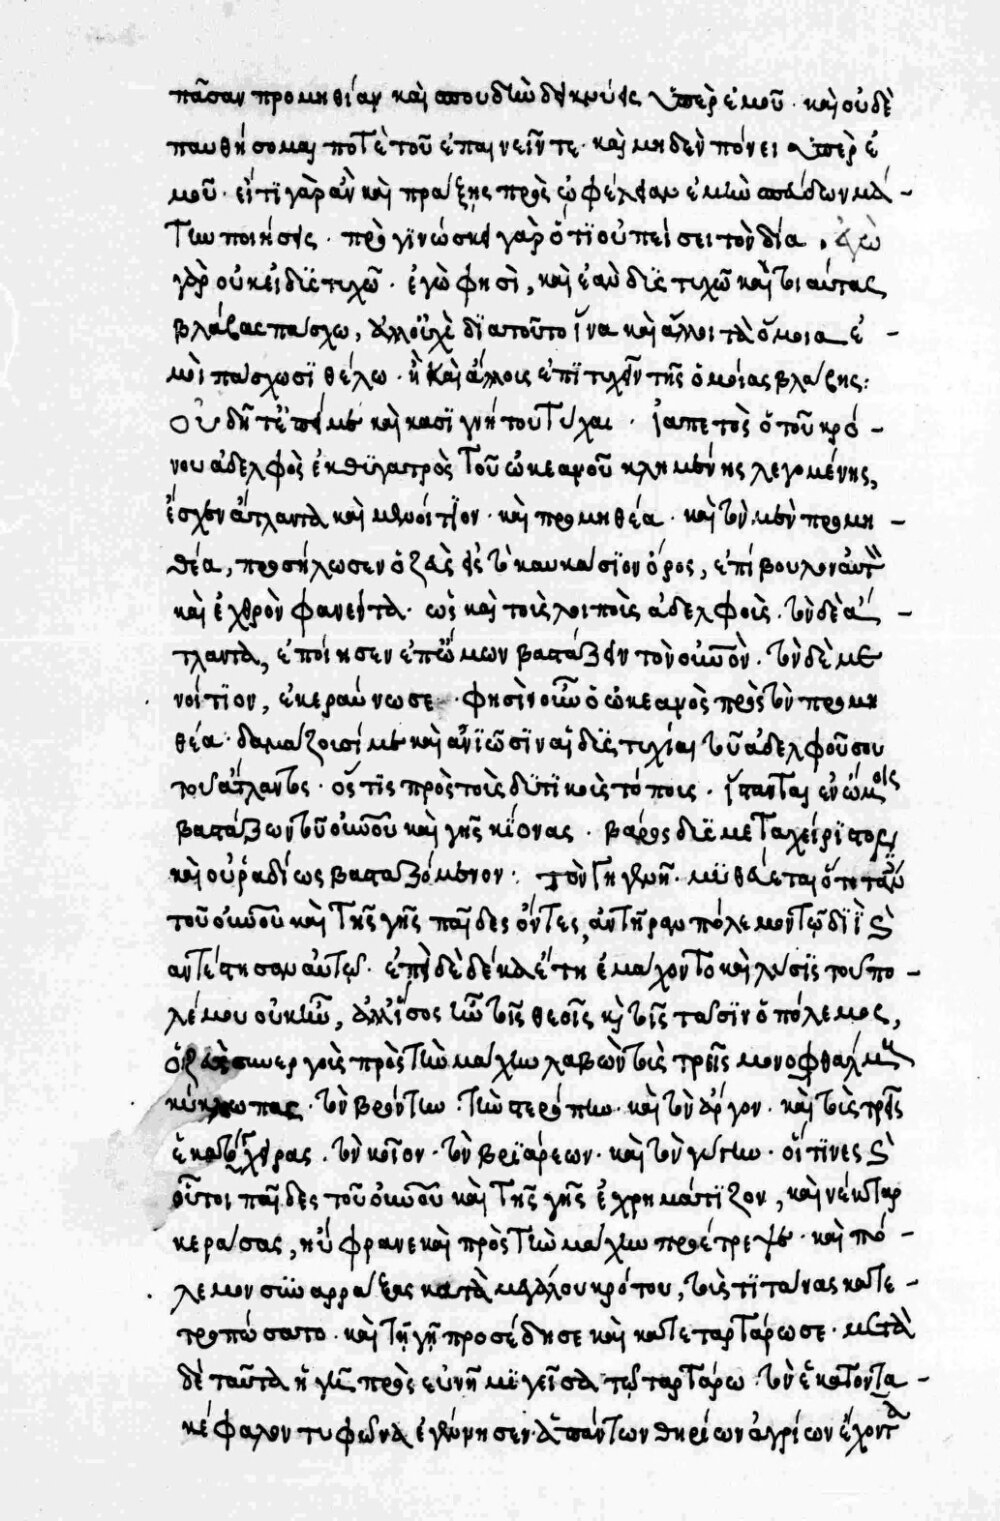 πᾶσαν προμηθίαν καὶ σπουδὴν δεικνύεις ὑπὲρ ἐμοῦ · καὶ οὐδὲ
παυθήσομαι ποτὲ τοῦ ἐπαινεῖν τε · καὶ μηδὲν πόνει ὑπὲρ ἐ
μοῦ · εἴ τι γὰρ ἂν καὶ πράξῃς πρὸς ὠφέλειαν ἐμὴν σπεύδων μά -
την ποιήσεις · προγινώσκει γὰρ ὅτι οὐ πείσει τὸν δία · ἐγὼ
γὰρ οὐκ εἰ δυστυχῶ · ἐγὼ φησὶ, καὶ ἐὰν δυστυχῶ καὶ τοιαύτας
βλάβας πάσχω, ἀλλ' οὐχὶ διατοῦτο ἵνα καὶ ἄλλοι τὰ ὅμοια ἐ -
μοὶ πάσχωσι θέλω · ἢ καὶ ἄλλοις ἐπιτυχεῖν τῆς ὁμοίας βλάβης :
Οὐ δῆτ' ἐπεί με καὶ κασιγνήτου τύχαι · ἰαπετὸς ὁ τοῦ κρό -
νου ἀδελφὸς ἐκ θυγατρὸς τοῦ ὠκεανοῦ κλημένης λεγομένης,
ἔσχεν ἄτλαντα καὶ μενοίτιον · καὶ προμηθέα · καὶ τὸν μὲν προμη -
θέα, προσήλωσεν ὁ ζεὺς εἰς τὸ καυκάσιον ὄρος, ἐπίβουλον αὐτοῦ
καὶ ἐχθρὸν φανέντα · ὡς καὶ τοῖς λοιποῖς ἀδελφοῖς · τὸν δὲ ἄ -
τλαντα, ἐποίησεν ἐπ' ὤμων βαστάζειν τὸν οὐρανόν · τὸν δὲ με
νοίτιον, ἐκεραύνωσε · φησὶν οὖν ὁ ὠκεανὸς πρὸς τὸν προμη
θέα · δαμάζουσί με καὶ ἀνιῶσιν αἱ δυστυχίαι τοῦ ἀδελφοῦ σου
τοῦ ἄτλαντος · ὅς τις πρὸς τοῖς δυτικοῖς τόποις · ἵσταται ἐν ὤμοις
βαστάζων τοῦ οὐρανοῦ καὶ γῆς κίονας · βάρος δυσμεταχείριστον
καὶ οὐ ῥαδίως βασταζόμενον · Τὸν γηγενῆ · μυθεύεται ὅτι
τοῦ οὐρανοῦ καὶ τῆς γῆς παῖδες ὄντες, ἀντῆραν πόλεμον τῷ διῒ καὶ
αντέστησαν αὐτῷ · ἐπεὶ δὲ δέκα ἔτη ἐμάχοντο καὶ λύσις τοῦ πο -
λέμου οὐκ ἦν, ἀλλ' ἶσος ἦν τοῖς θεοῖς καὶ τοῖς τιτᾶσιν ὁ πόλεμος,
ὁ ζεὺς συνεργοὺς πρὸς τὴν μάχην λαβὼν τοὺς τρεῖς μονοφθάλμους
κύκλωπας · τὸν βρόντην · τὸν στερόπην · καὶ τὸν ἄργον · καὶ τοὺς τρεῖς
ἑκατόγχειρας · τὸν κοῖον · τὸν βριάρεων · καὶ τὸν γύγην · οἵτινες καὶ
οὗτοι παῖδες τοῦ οὐρανοῦ καὶ τῆς γῆς ἐχρημάτιζον, καὶ νέκταρ
κεράσας, ηὔφρανε καὶ πρὸς τὴν μάχην προέτρεψε · καὶ πό -
λεμον συναρράξας κατὰ μεγάλου κρότου, τοὺς τιτάνας κατε -
τροπώσατο · καὶ τῇ γῇ προσέδησε καὶ κατεταρτάρωσε · μετὰ
δὲ ταῦτα ἡ γῆ πρὸς εὐνὴν μιγεῖσα τῷ ταρτάρω · τὸν ἑκατοντα -
κέφαλον τυφῶνα ἐγέννησεν · ἁπάντων θηρίων ἀγρίων ἔχοντα